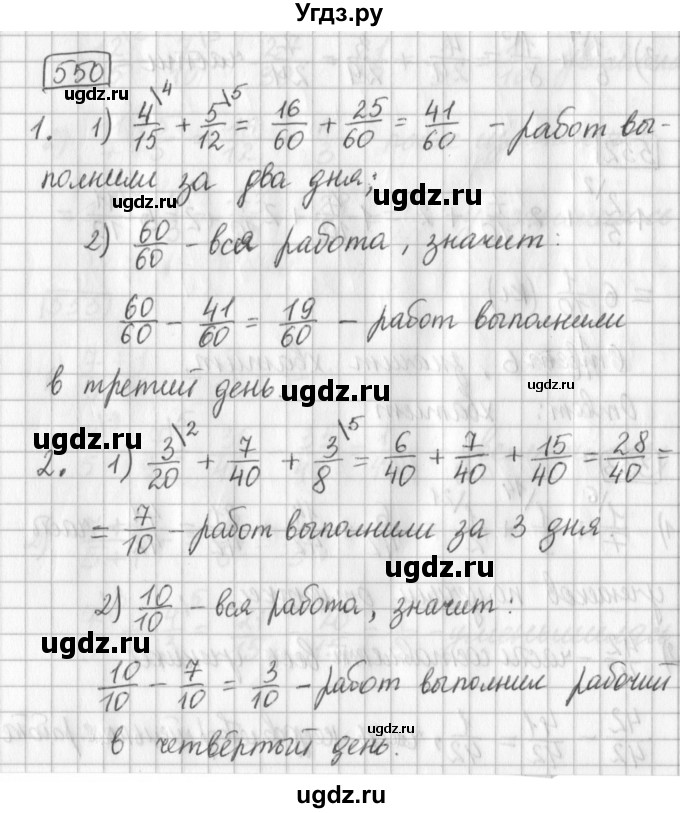 Угдз.ру
550
ugdz.ru
1. 1) 4/15\4 + 5/12\5 = 16/60 + 25/60 = 41/60 – работ вы-
полнили за два дня;
ugdz.ru ugdz.ru
2) 60/60 – вся работа, значит:
ugdz.ru ugdz.ru
60/60 – 41/60 = 19/60 – работ выполнили
в третий день.
ugdz.ru ugdz.ru
2. 1) 3/20\2 + 7/40 + 3/8\5 = 6/40 + 7/40 + 15/40 = 28/40 =
ugdz.ru
= 7/10 – работ выполнили за 3 дня
ugdz.ru ugdz.ru
2) 10/10 – вся работа, значит:
ugdz.ru ugdz.ru
10/10 – 7/10 = 3/10 – работ выполнил рабочий
ugdz.ru
в четвёртый день.
ugdz.ru
ugdz.ru